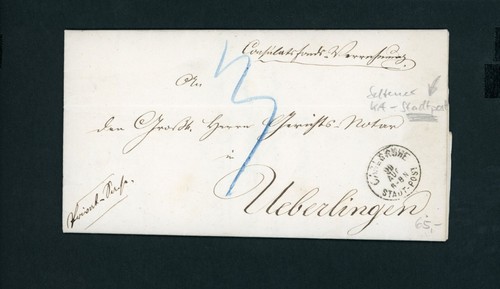 Consulatsfonds-Verrechnung.
An
Seltener
KA-Stadtpost
den Großh. Herrn Gerichts-Notar
in
3
Ueberlingen
CARLSRUHE
STADT-POST
Privat-Sache.
65,-